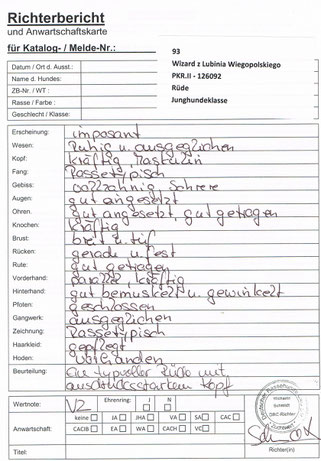 Richterbericht
und Anwartschaftskarte
für Katalog- / Melde-Nr.: 93
Datum / Ort d. Ausst.: Wizard z Lubinia Wiegopolskiego
Name d. Hundes: PKR.II - 126092
ZB-Nr. / WT : Rüde
Rasse / Farbe : Junghundeklasse
Geschlecht / Klasse:
Erscheinung: imposant
Wesen: Ruhig u. ausgeglichen
Kopf: kräftig, maskulin
Fang: Rassetypisch
Gebiss: vollzahnig, Schere
Augen: gut angesetzt
Ohren: gut angesetzt, gut getragen
Knochen: kräftig
Brust: breit u. tief
Rücken: gerade u. fest
Rute: gut getragen
Vorderhand: parallel, kräftig
Hinterhand: gut bemuskelt u. gewinkelt
Pfoten: geschlossen
Gangwerk: ausgeglichen
Zeichnung: Rassetypisch
Haarkleid: gepflegt
Hoden: vorhanden
Beurteilung: Ein typvoller Rüde mit
ausdrucksstarkem Kopf
Wertnote: V2 Ehrenring: J N
Anwartschaft: keine JA JHA VA SA CAC
CACIB EA WA CACH VC
Titel: Richter(in)